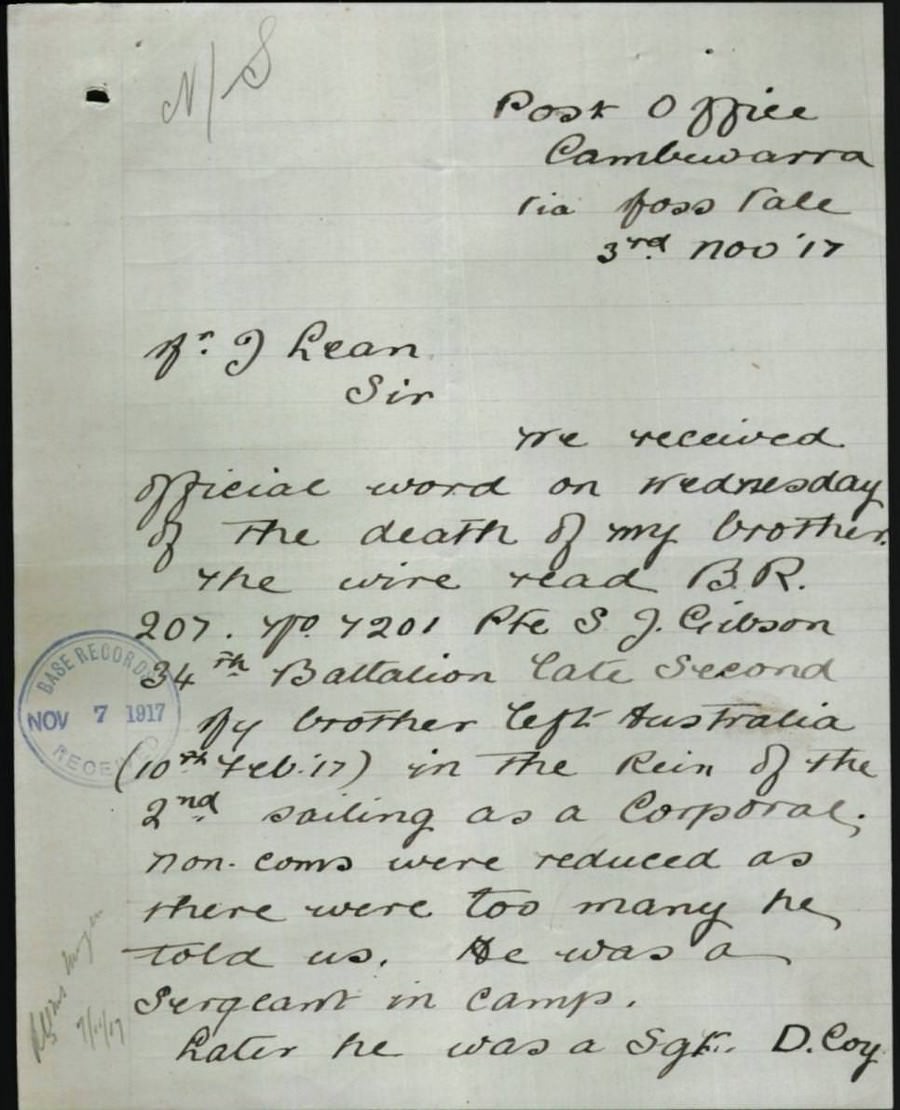 N/S
Post Office
Cambewarra
via Moss Vale
3rd Nov '17
Mr. J Lean
Sir
We received
official word on Wednesday
of the death of my brother.
The wire read B.R.
207. No. 7201 Pte S J. Gibson
34th Battalion late Second
My brother left Australia
(10th Feb. '17) in the Rein of the
2nd sailing as a Corporal.
Non-coms were reduced as
there were too many he
told us. He was a
Sergeant in camp.
Later he was a Sgt. D. Coy
BASE RECORDS
NOV 7 1917
RECEIVED
7/11/17